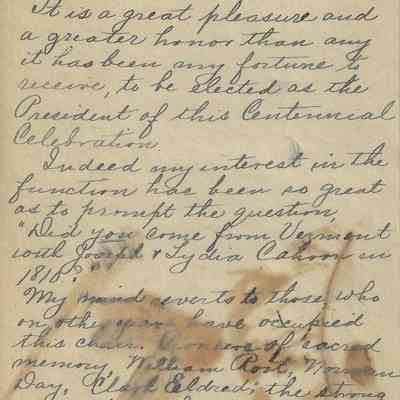 It is a great pleasure and
a greater honor than any
it has been my fortune to
receive, to be elected as the
President of this Centennial
Celebration.
Indeed my interest in the
function has been so great
as to prompt the question,
"Did you come from Vermont
with Joseph & Lydia Cahoon in
1810?"
My mind reverts to those, who
on other years have occupied
this chair. Pioneers of sacred
memory, William Root, Norman
Day, Clark Eldred; the strong